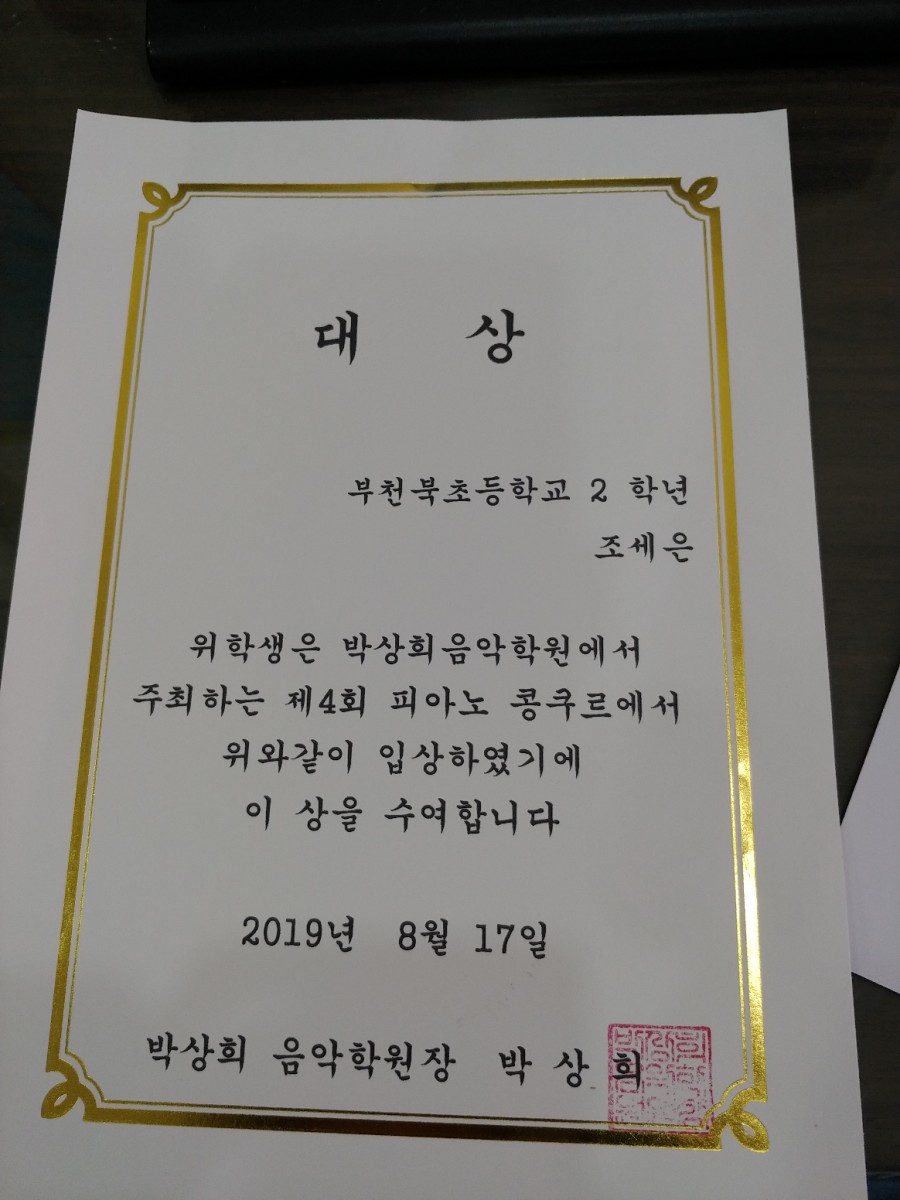 대 상
부천북초등학교 2 학년
조세은
위학생은 박상희음악학원에서
주최하는 제4회 피아노 콩쿠르에서
위와같이 입상하였기에
이 상을 수여합니다
2019년 8월 17일
박상희 음악학원장 박 상 희